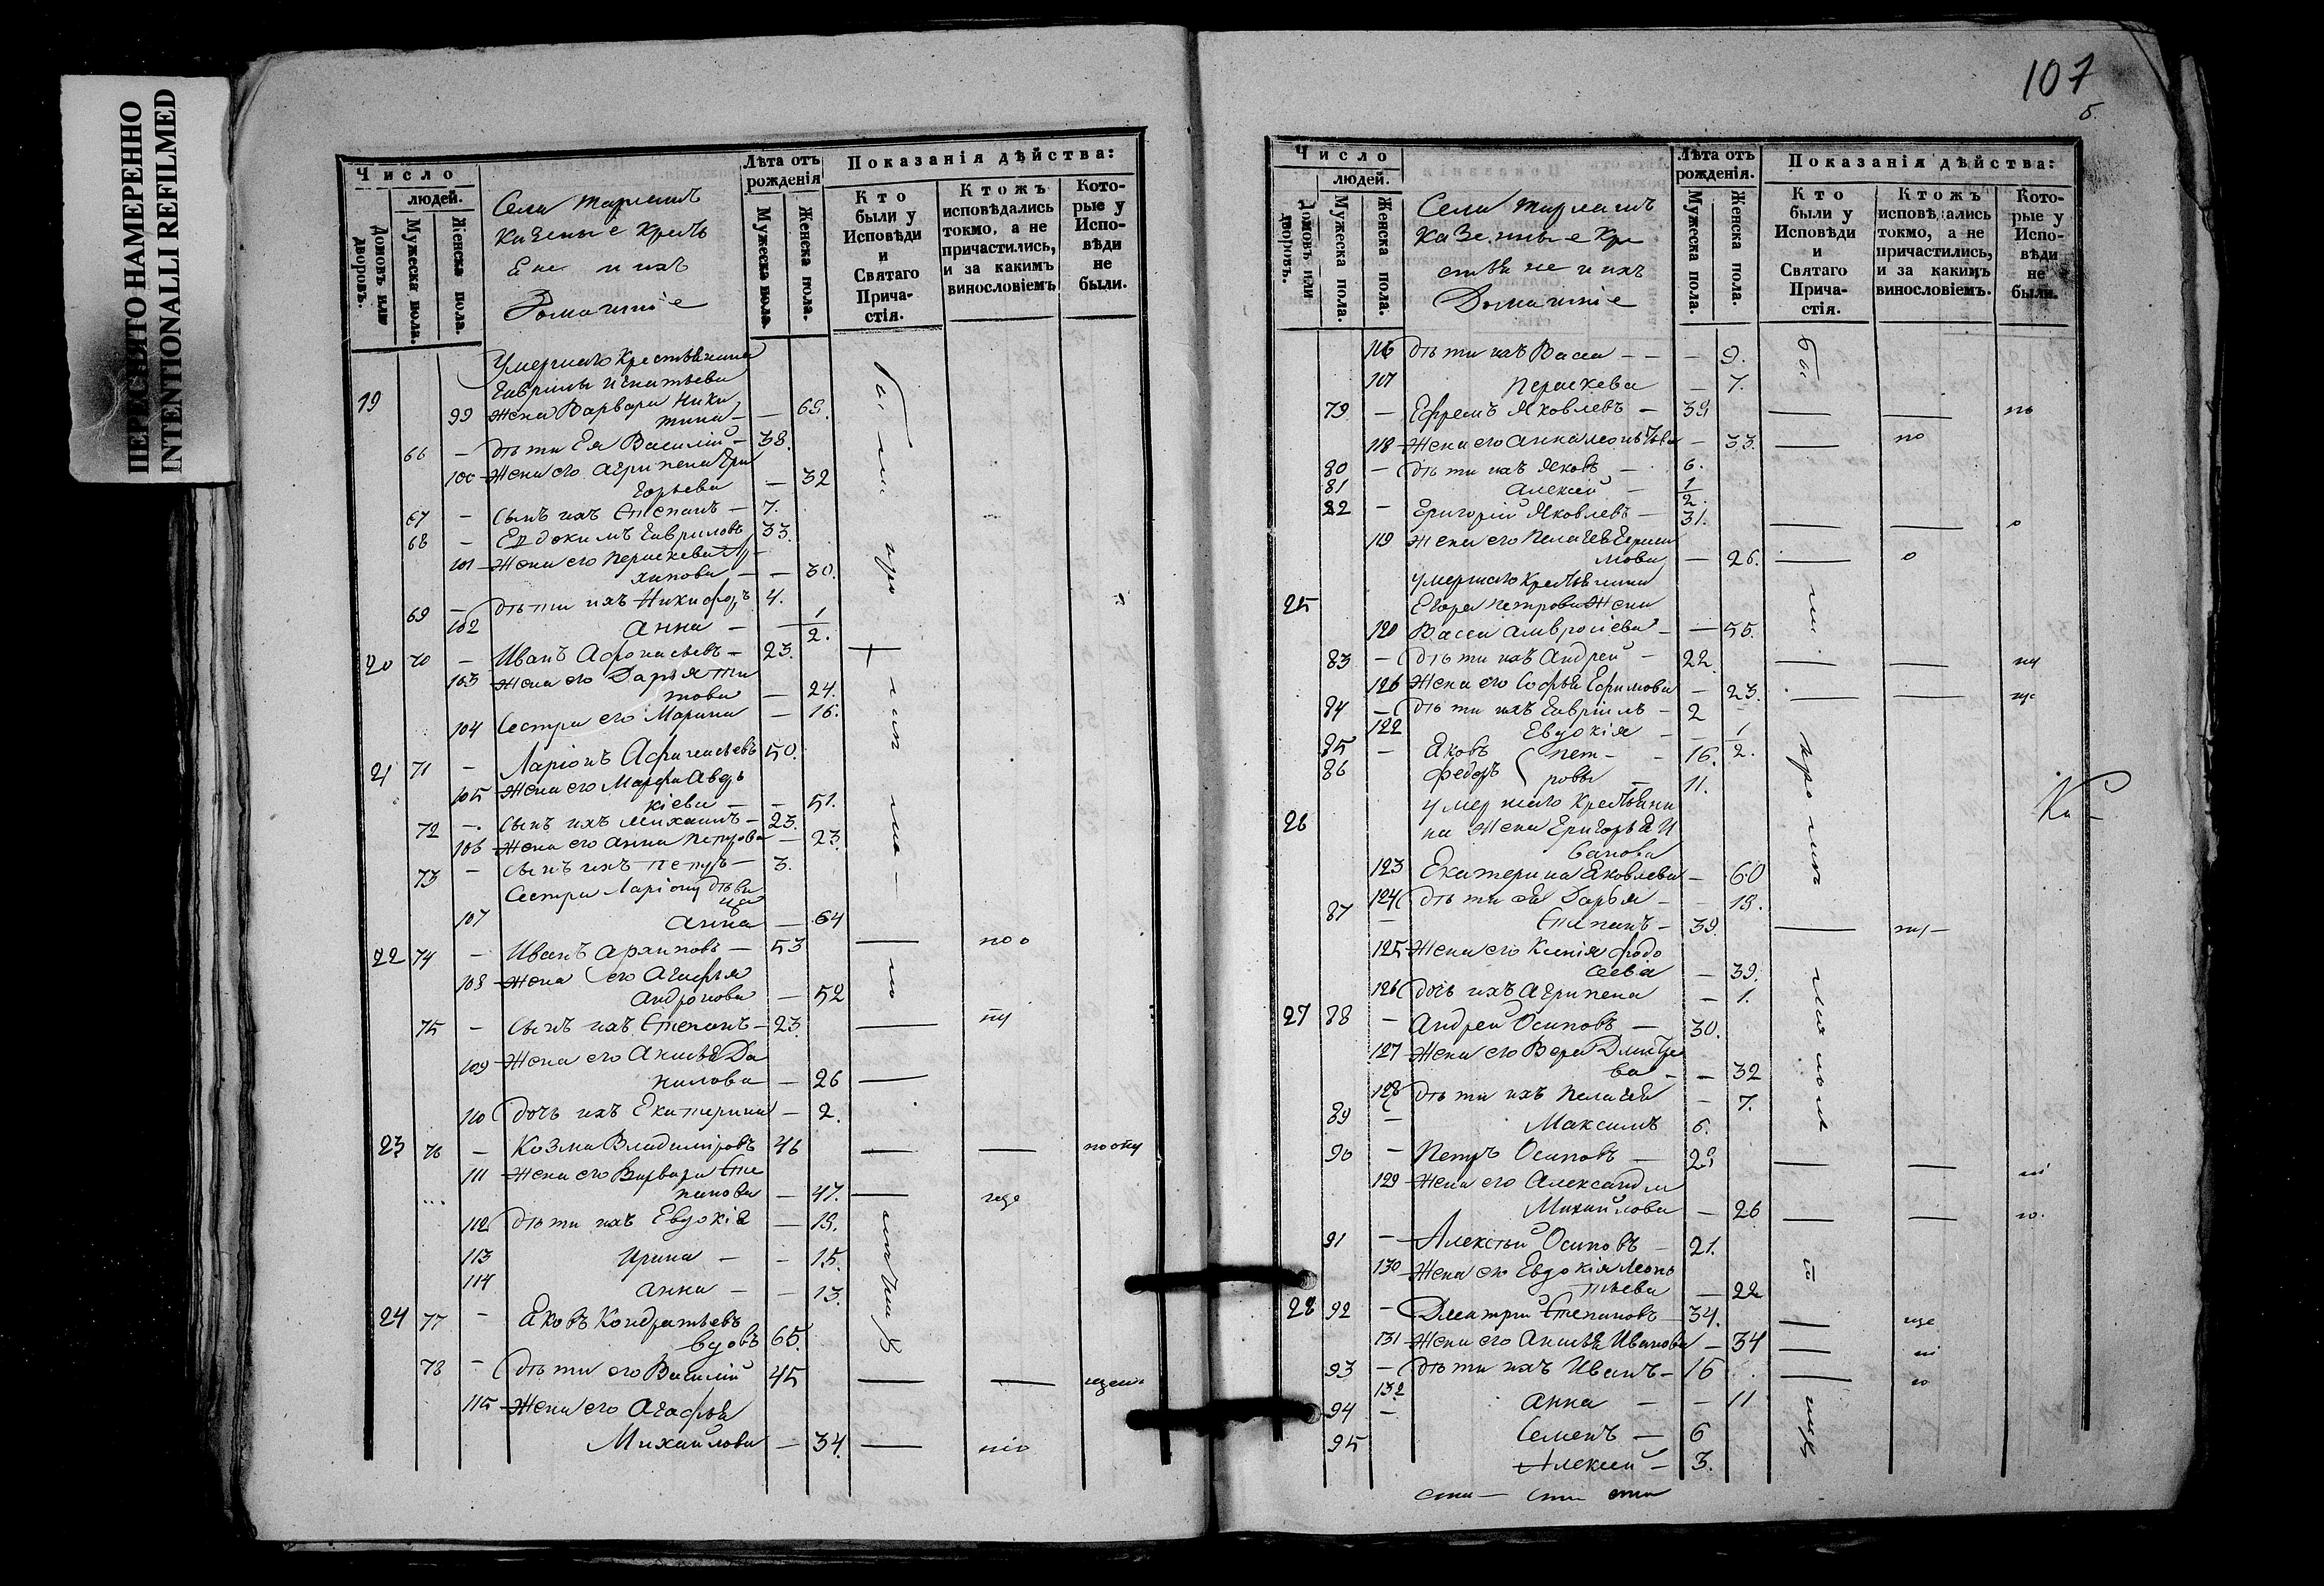 ПЕРЕСНЯТО НАМЕРЕННО
INTENTIONALLI REFILMED
Число
людей.
Домовъ или дворовъ.
Мужеска пола.
Женска пола.
Села
Казеные Кресть
Ене и ихъ
Домашніе
Лѣта отъ рожденія
Мужеска пола.
Женска пола.
Показанія дѣйства:
Кто были у Исповѣди и Святаго Прича-стія.
Ктожъ исповѣдались токмо, а не причастились, и за какимъ винословіемъ
Кото-рые у Испо-вѣди не были.
Умершаго Крестьянина
Гавріилы Игнатьева
19 99 Жена Варвара Ники
тина — — 69.
66 — дѣти Ея Василій — 38.
100 Жена его Агрипена Гри
горьева — 32
67 — сынъ ихъ Степанъ — 7.
68 — Евдокимъ Гавриловъ 33.
101 Жена его Параскева Ар
хипова — — 30.
69 — дѣти ихъ Никифоръ 4.
102 Анна — — 1/2.
20 70 — Иванъ Афонасьевъ — 23.
103 Жена его Дарья Ти
това — 24.
104 Сестра его Марина — 16.
21 71 — Ларіонъ Афанасьевъ 50.
105 Жена его Марфа Авдѣ
кіева — — 51.
72 — сынъ ихъ Михаилъ — 23.
106 Жена его Анна Петрова — 23.
73 — сынъ ихъ Петръ — 3.
Сестра Ларіону дѣви
ца
107 Анна — 64
22 74 — Иванъ Архиповъ — 53
108 Жена его Агафья
Андронова — 52
75 — Сынъ ихъ Степанъ — 23.
109 Жена его Аксинья Да
нилова — 26
110 дочь ихъ Екатерина — 2.
23 76 — Козма Владиміровъ 46
111 Жена его Варвара Сте
панова — 47.
112 дѣти ихъ Евдокія — 19.
113 Ирина — — 15.
114 Анна — — 13.
24 77 — Яковъ Кондратьевъ
вдовъ 65.
78 — дѣти его Василій 45
115 Жена его Агафья
Михайлова — 34.
107
Число
людей.
Домовъ или дворовъ.
Мужеска пола.
Женска пола.
Села
Казенные Кре
стьяне и ихъ
Домашніе
Лѣта отъ рожденія.
Мужеска пола.
Женска пола.
Показанія дѣйства:
Кто были у Исповѣди и Святаго Прича-стія.
Ктожъ исповѣдались токмо, а не причастились, и за какимъ винословіемъ.
Кото-рые у Испо-вѣди не были.
116 дѣти ихъ Васса — — — 9.
107 Параскева — 7.
79 — Ефремъ Яковлевъ — 39
118 Жена его Анна Леонтьева — 33.
80 — дѣти ихъ Яковъ — 6.
81 Алексій — 1/2
82 — Григорій Яковлевъ — 31.
119 Жена его Пелагея Ераси
мова — 26.
умершаго Крестьянина
25 Егора Петрова Жена
120 Васса Амвросіева — — 55.
83 — дѣти ихъ Андрей — 22
126 Жена его Софья Ефимова — 23.
84 — дѣти ихъ Гавріилъ — 2
122 Евдокія — — 1/2.
85 — Яковъ Пет- — 16.
86 Федоръ ровы — 11.
умершаго Крестьяни
26 на Жена Григорья И
ванова
123 Екатерина Яковлева — 60
124 дѣти ея Дарья — — 19.
87 — Степанъ — 39.
125 Жена его Ксенія Федо
сеева — 39.
126 дочь ихъ Агрипена — 1.
27 88 — Андрей Осиповъ — 30.
127 Жена его Вера Дмитре
ва — — 32
128 дѣти ихъ Пелагея — 7.
89 — Максимъ 5.
90 — Петръ Осиповъ — 29
129 Жена его Александра
Михайлова — 26
91 — Алексѣй Осиповъ — 21.
130 Жена его Евдокія Леон
тьева — 22
28 92 — Дмитрій Степановъ 34.
131 Жена его Аксинья Иванова — 34
93 — дѣти ихъ Иванъ — 16
132 Анна — — 11
94 — Семенъ — 6
95 Алексій — 3.